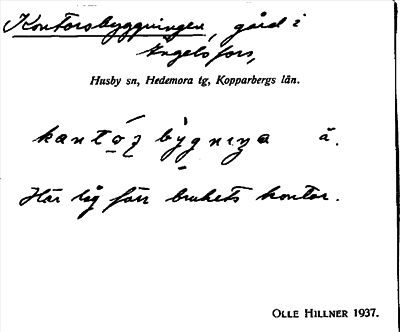 Kontorsbyggningen, gård i
Engelsfors,
Husby sn, Hedemora tg, Kopparbergs län.
Här låg förr brukets kontor.
OLLE HILLNER 1937.